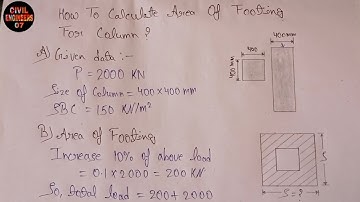 CIVIL
ENGINEERS
07
How To Calculate Area Of Footing
For Column?
A) Given data :-
P = 2000 KN
Size of Column = 400 x 400 mm
SBC = 150 KN/m²
B) Area of Footing
Increase 10% of above load
= 0.1 x 2000 = 200 KN
So, total load = 200 + 2000
400
400 mm
400mm
S
S = ?